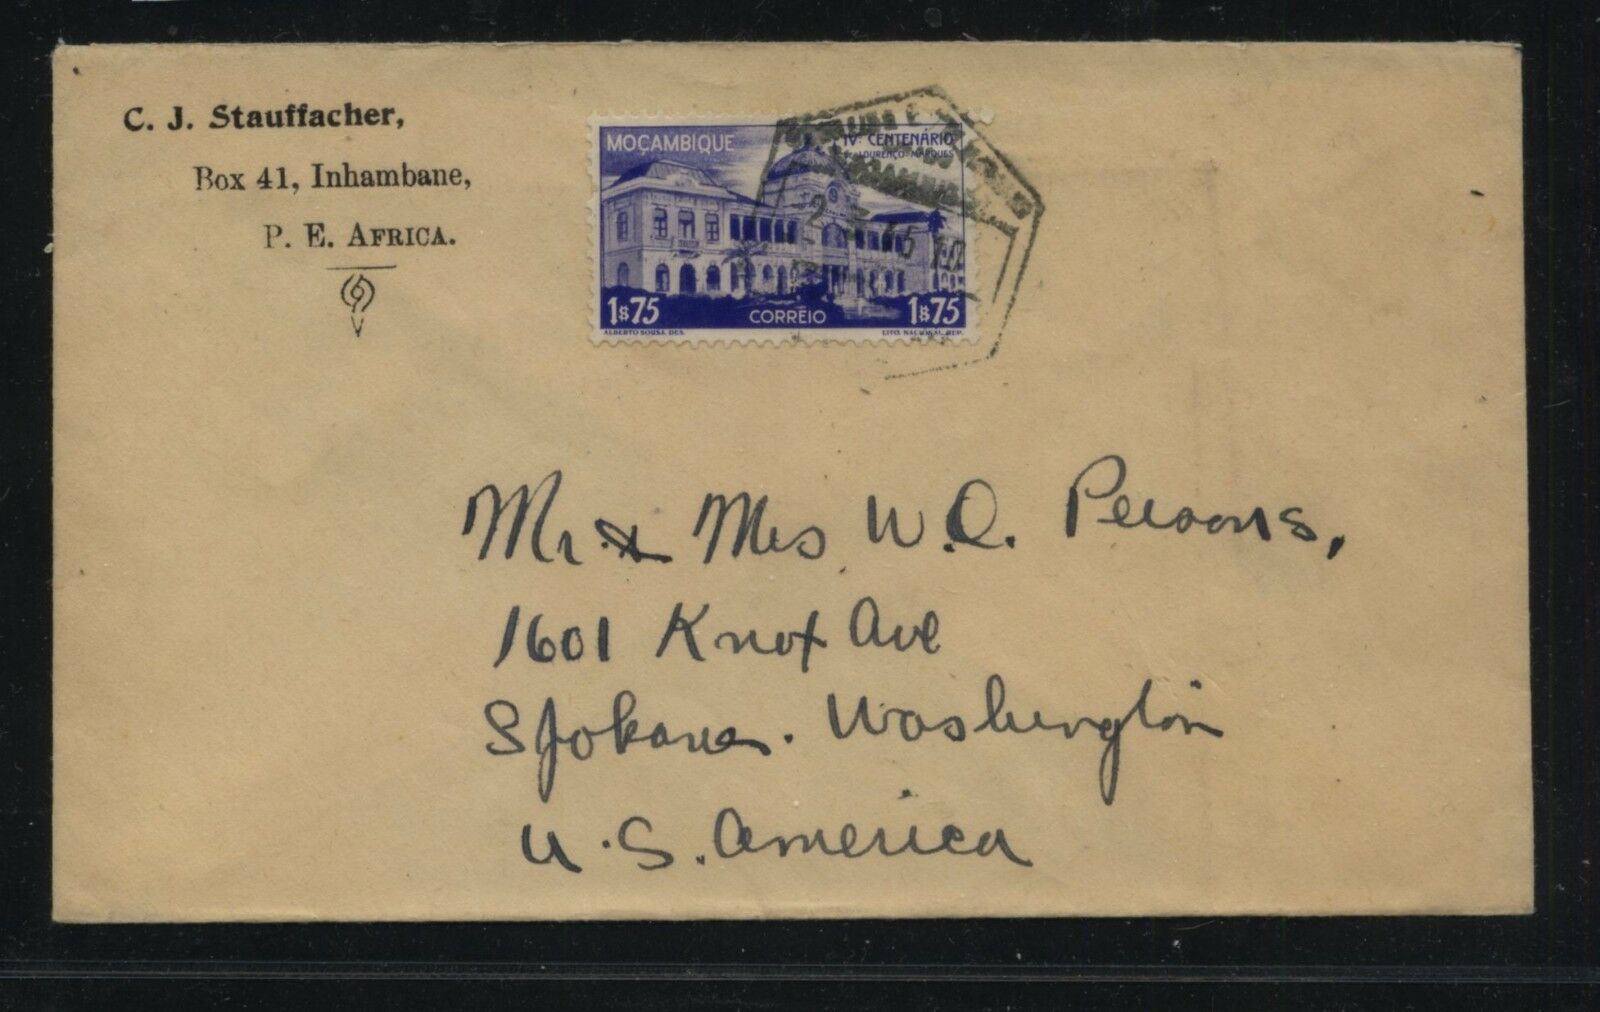 C. J. Stauffacher,
Box 41, Inhambane,
P. E. AFRICA.
MOÇAMBIQUE
IV CENTENÁRIO
LOURENÇO MARQUES
1$75 CORREIO 1$75
ALBERTO SOUSA DES. LITO. NACIONAL. REP.
Mr. & Mrs W.Q. Persons,
1601 Knox Ave
Spokane. Washington
U.S. America